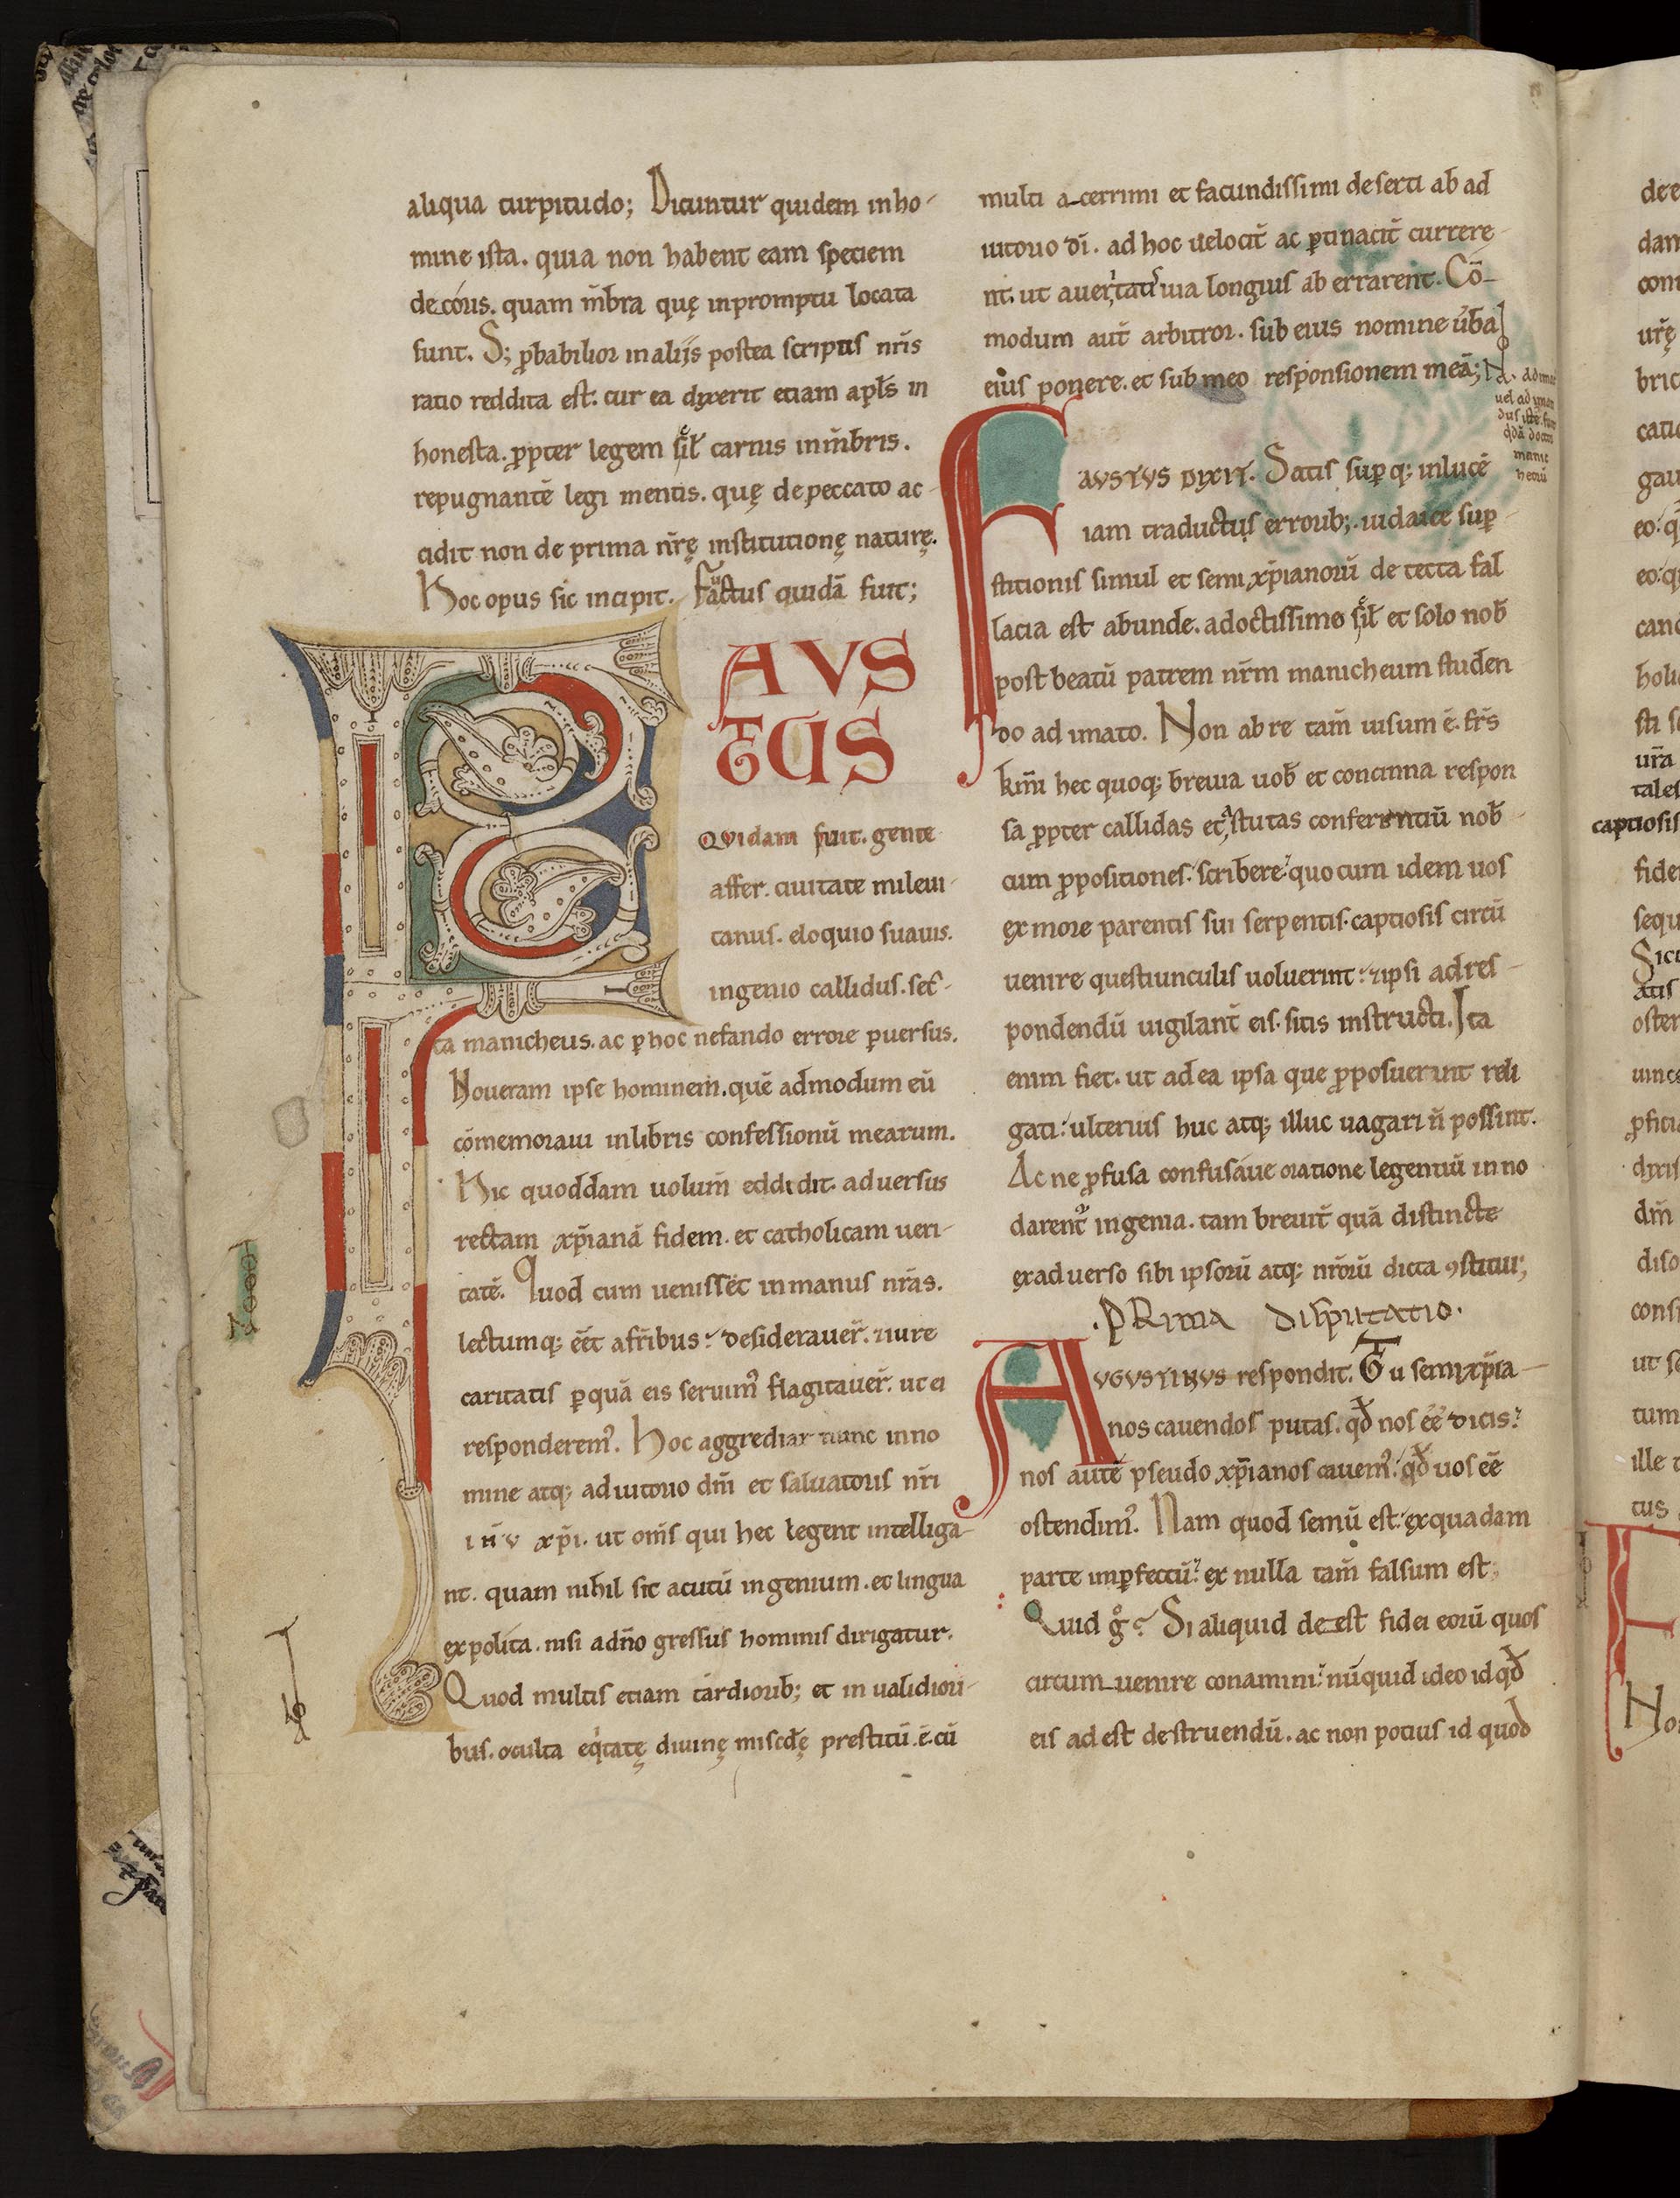 aliqua turpitudo; Dicuntur quidem inho-
mine ista. quia non habent eam speciem
decoris. quam m̄bra quę inpromptu locata
sunt. S; p̱babilior inalijs postea scriptis nr̄is
ratio reddita est: cur ea dixerit etiam apl̄s in
honesta. p̱pter legem sil̄ carnis inm̄bris.
repugnantē legi mentis. quę depeccato ac-
cidit non de prima nr̄ę institutionę naturę.
Hoc opus sic incipit. Faustus quidā fuit;
FAVS
TUS
Qvidam fuit. gente
affer. ciuitate mileui-
tanus. eloquio suauis.
ingenio callidus. sec-
ta manicheus. ac ꝑ hoc nefando errore ꝑuersus.
Noueram ipse hominem. quē admodum eū
cōmemoraui inlibris confessionū mearum.
Hic quoddam uolum̄ eddidit. aduersus
rectam xp̄ianā fidem. et catholicam ueri-
tatē. Quod cum uenisset inmanus nr̄as.
lectumq; eēt afr̄ibus: desiderauer̄. ⁊iure
caritatis ꝑquā eis seruimꝰ flagitauer̄. ut ei
responderemꝰ. Hoc aggrediar nunc inno
mine atq; adiutorio dn̄i et saluatoris nr̄i
ihv xp̄i. ut om̄s qui hec legent intelliga-
nt. quam nihil sit acutū ingenium. et lingua
expolita. nisi adn̄o gressus hominis dirigatur.
Quod multis etiam tardiorib; et inualidiori-
bus. occulta eq̇tatę diuinę misc̄dę prestitū.ē.cū
multi acerrimi et facundissimi deserti ab ad
iutorio dī. ad hoc uelocit̄ ac ꝑtinacit̄ currere
nt. ut aueṙitatis uia longius aberrarent. Cō-
modum aut̄ arbitror. sub eius nomine ūba
eius ponere. et sub meo responsionem meā;
FAVSTVS DIXIT. Satis suꝑ q; inlucē
iam traductus errorib; iudaice suꝑ-
stitionis simul et semixp̄ianorū detecta fal
lacia est abunde. adoctissimo sil̄ et solo nob̄
post beatū patrem nr̄m manicheum studen
do adimato. Non abre tam̄ uisum ē. fr̄s
kr̄mi hec quoq; breuia uob̄ et concinna respon
sa p̱pter callidas et astutas conferentiū nob̄-
cum p̱positiones scribere: quo cum idem uos
ex more parentis sui serpentis captiosis circū
uenire questiunculis uoluerint: ⁊ipsi adres-
pondendū uigilant̄ eis. sitis instructi. Ita
enim fiet. ut adea ipsa que p̱posuerunt reli
gati: ulterius huc atq; illuc uagari n̄ possint.
Ac ne p̱fusa confusaue oratione legentiū inno
darent᷑ ingenia. tam breuit̄ quā distincte
exaduerso sibi ipsorū atq; nr̄orū dicta ꝯstitui;
.PRima Disputatio.
AVGVSTINVS respondit. Tu semixp̄ia-
nos cauendos putas. qđ nos eē dicis:
nos autē pseudo xp̄ianos cauemꝰ. qđ uos eē
ostendimꝰ. Nam quod semū est: exquadam
parte imꝑfectū: ex nulla tam̄ falsum est;
Quid g̊? Si aliquid deest fidei eorū quos
circumuenire conamini: nūquid ideo id qđ
eis adest destruendū. ac non potius id quod
captiosis